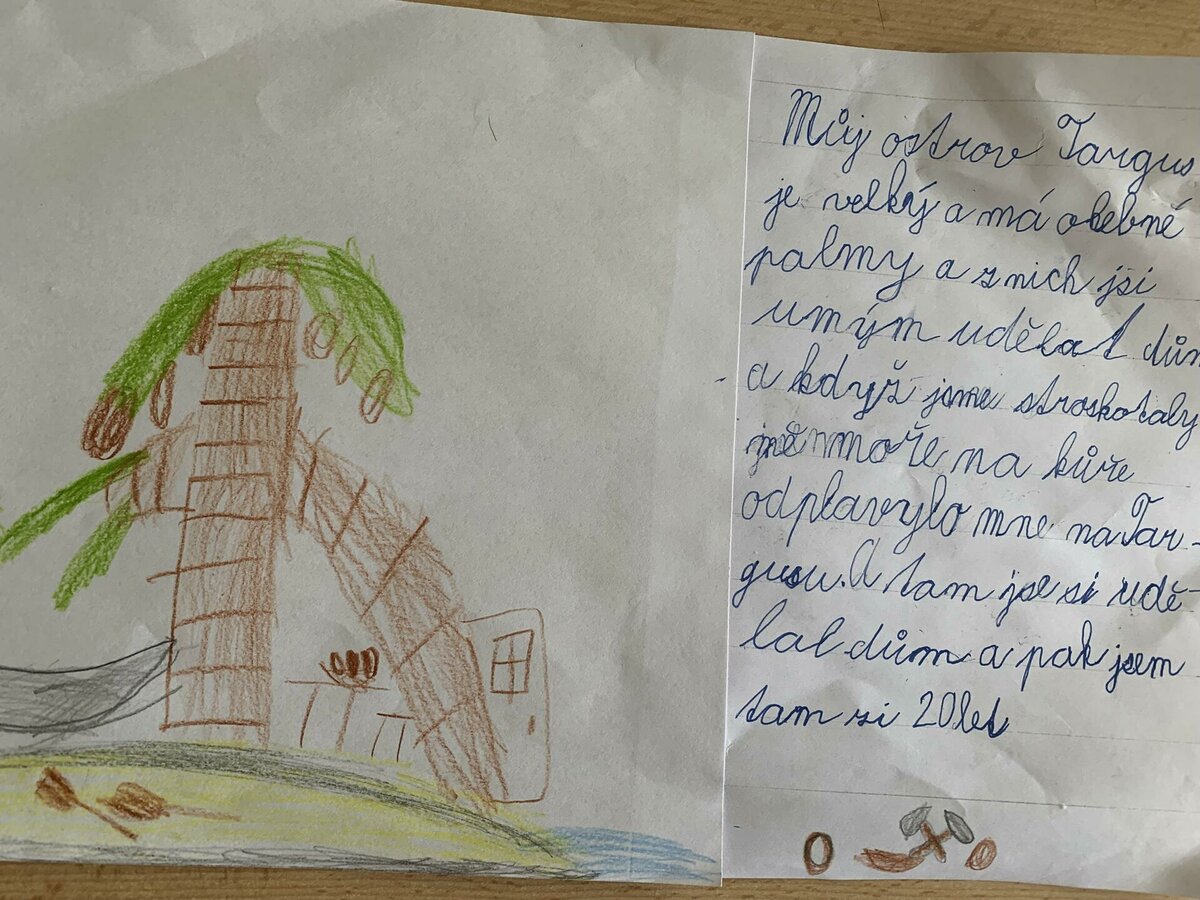 Můj ostrov Targus
je velký a má obebné
palmy a z nich jsi
umým udělat dům
a když jsme stroskotaly
moře na kůře
odplavylo mne na Tar-
gusu. A tam jse si udě-
lal dům a pak jsem
tam si 20 let